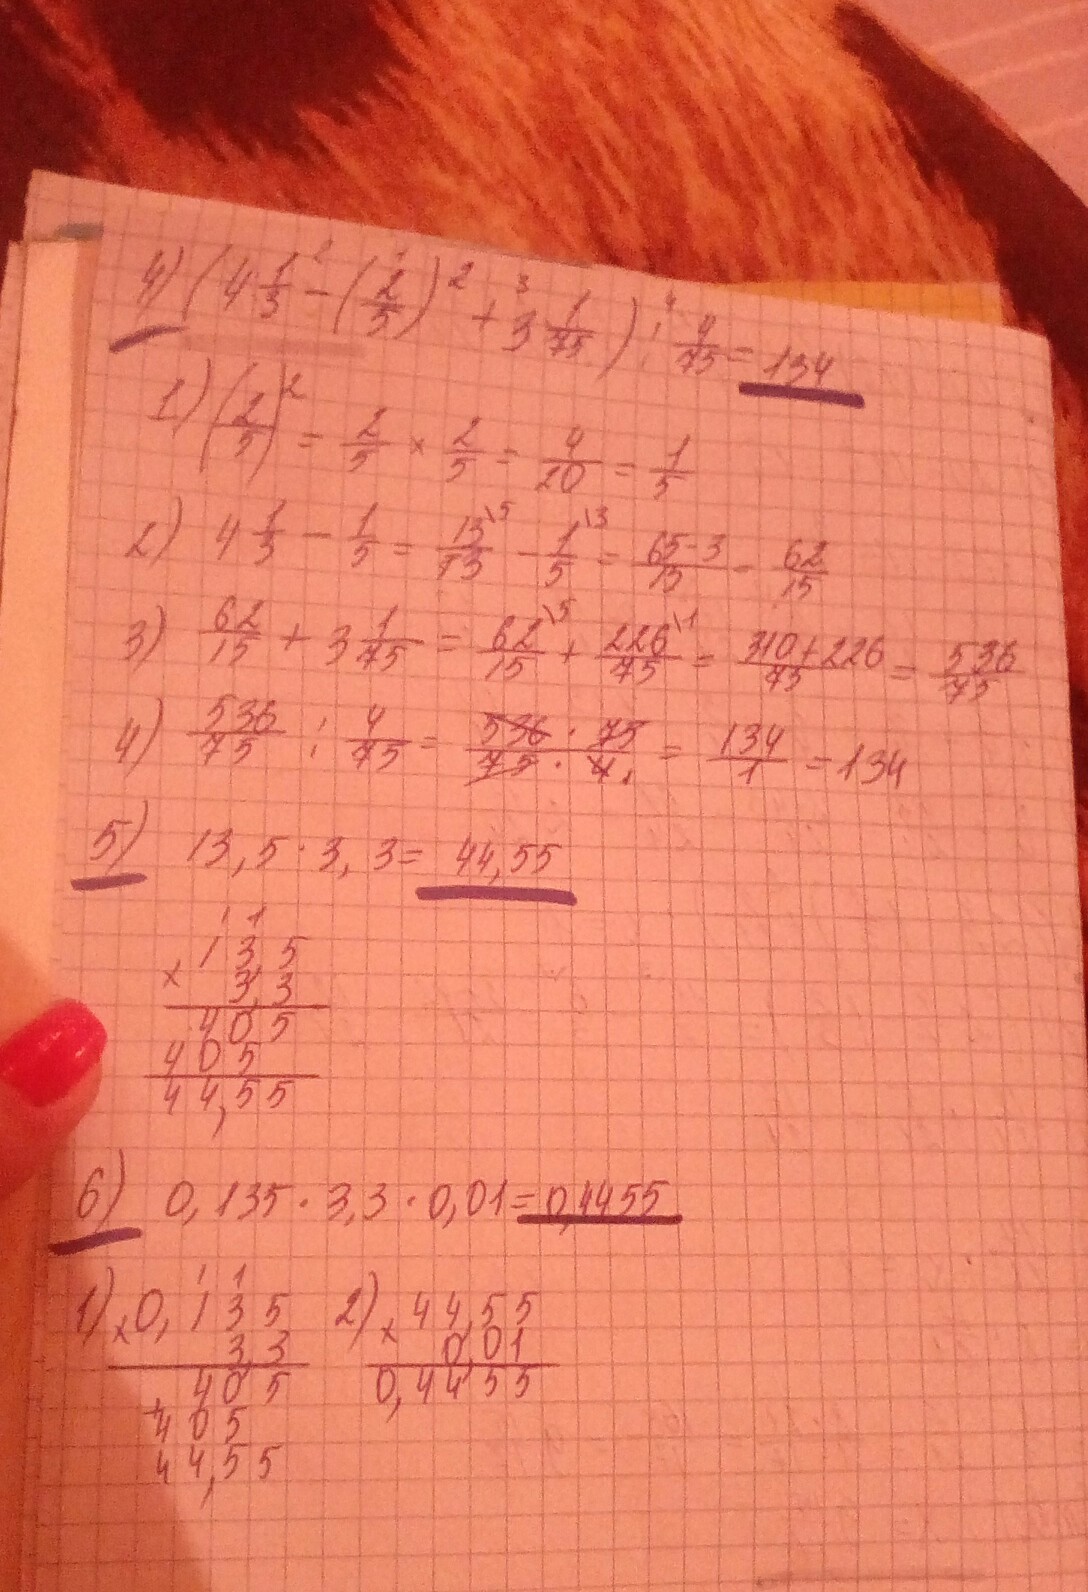 4) (4 1/3 - (2/5)² + 3 1/75) : 4/75 = 134
1) (2/5)² = 2/5 × 2/5 = 4/20 = 1/5
2) 4 1/3 - 1/5 = 13\5/13 - 1\3/5 = 65-3/15 = 62/15
3) 62/15 + 3 1/75 = 62\5/15 + 226\1/75 = 310+226/75 = 536/75
4) 536/75 : 4/75 = 536 · 75/75 · 4 1 = 134/1 = 134
5) 13,5 · 3,3 = 44,55
1 1
× 1 3 5
3,3
4 0 5
4 0 5
4 4,5 5
6) 0,135 · 3,3 · 0,01 = 0,4455
1 1
1) × 0,1 3 5 2) × 4 4,5 5
3,3 0,0 1
4 0 5 0,4 4 5 5
+ 4 0 5
4 4,5 5